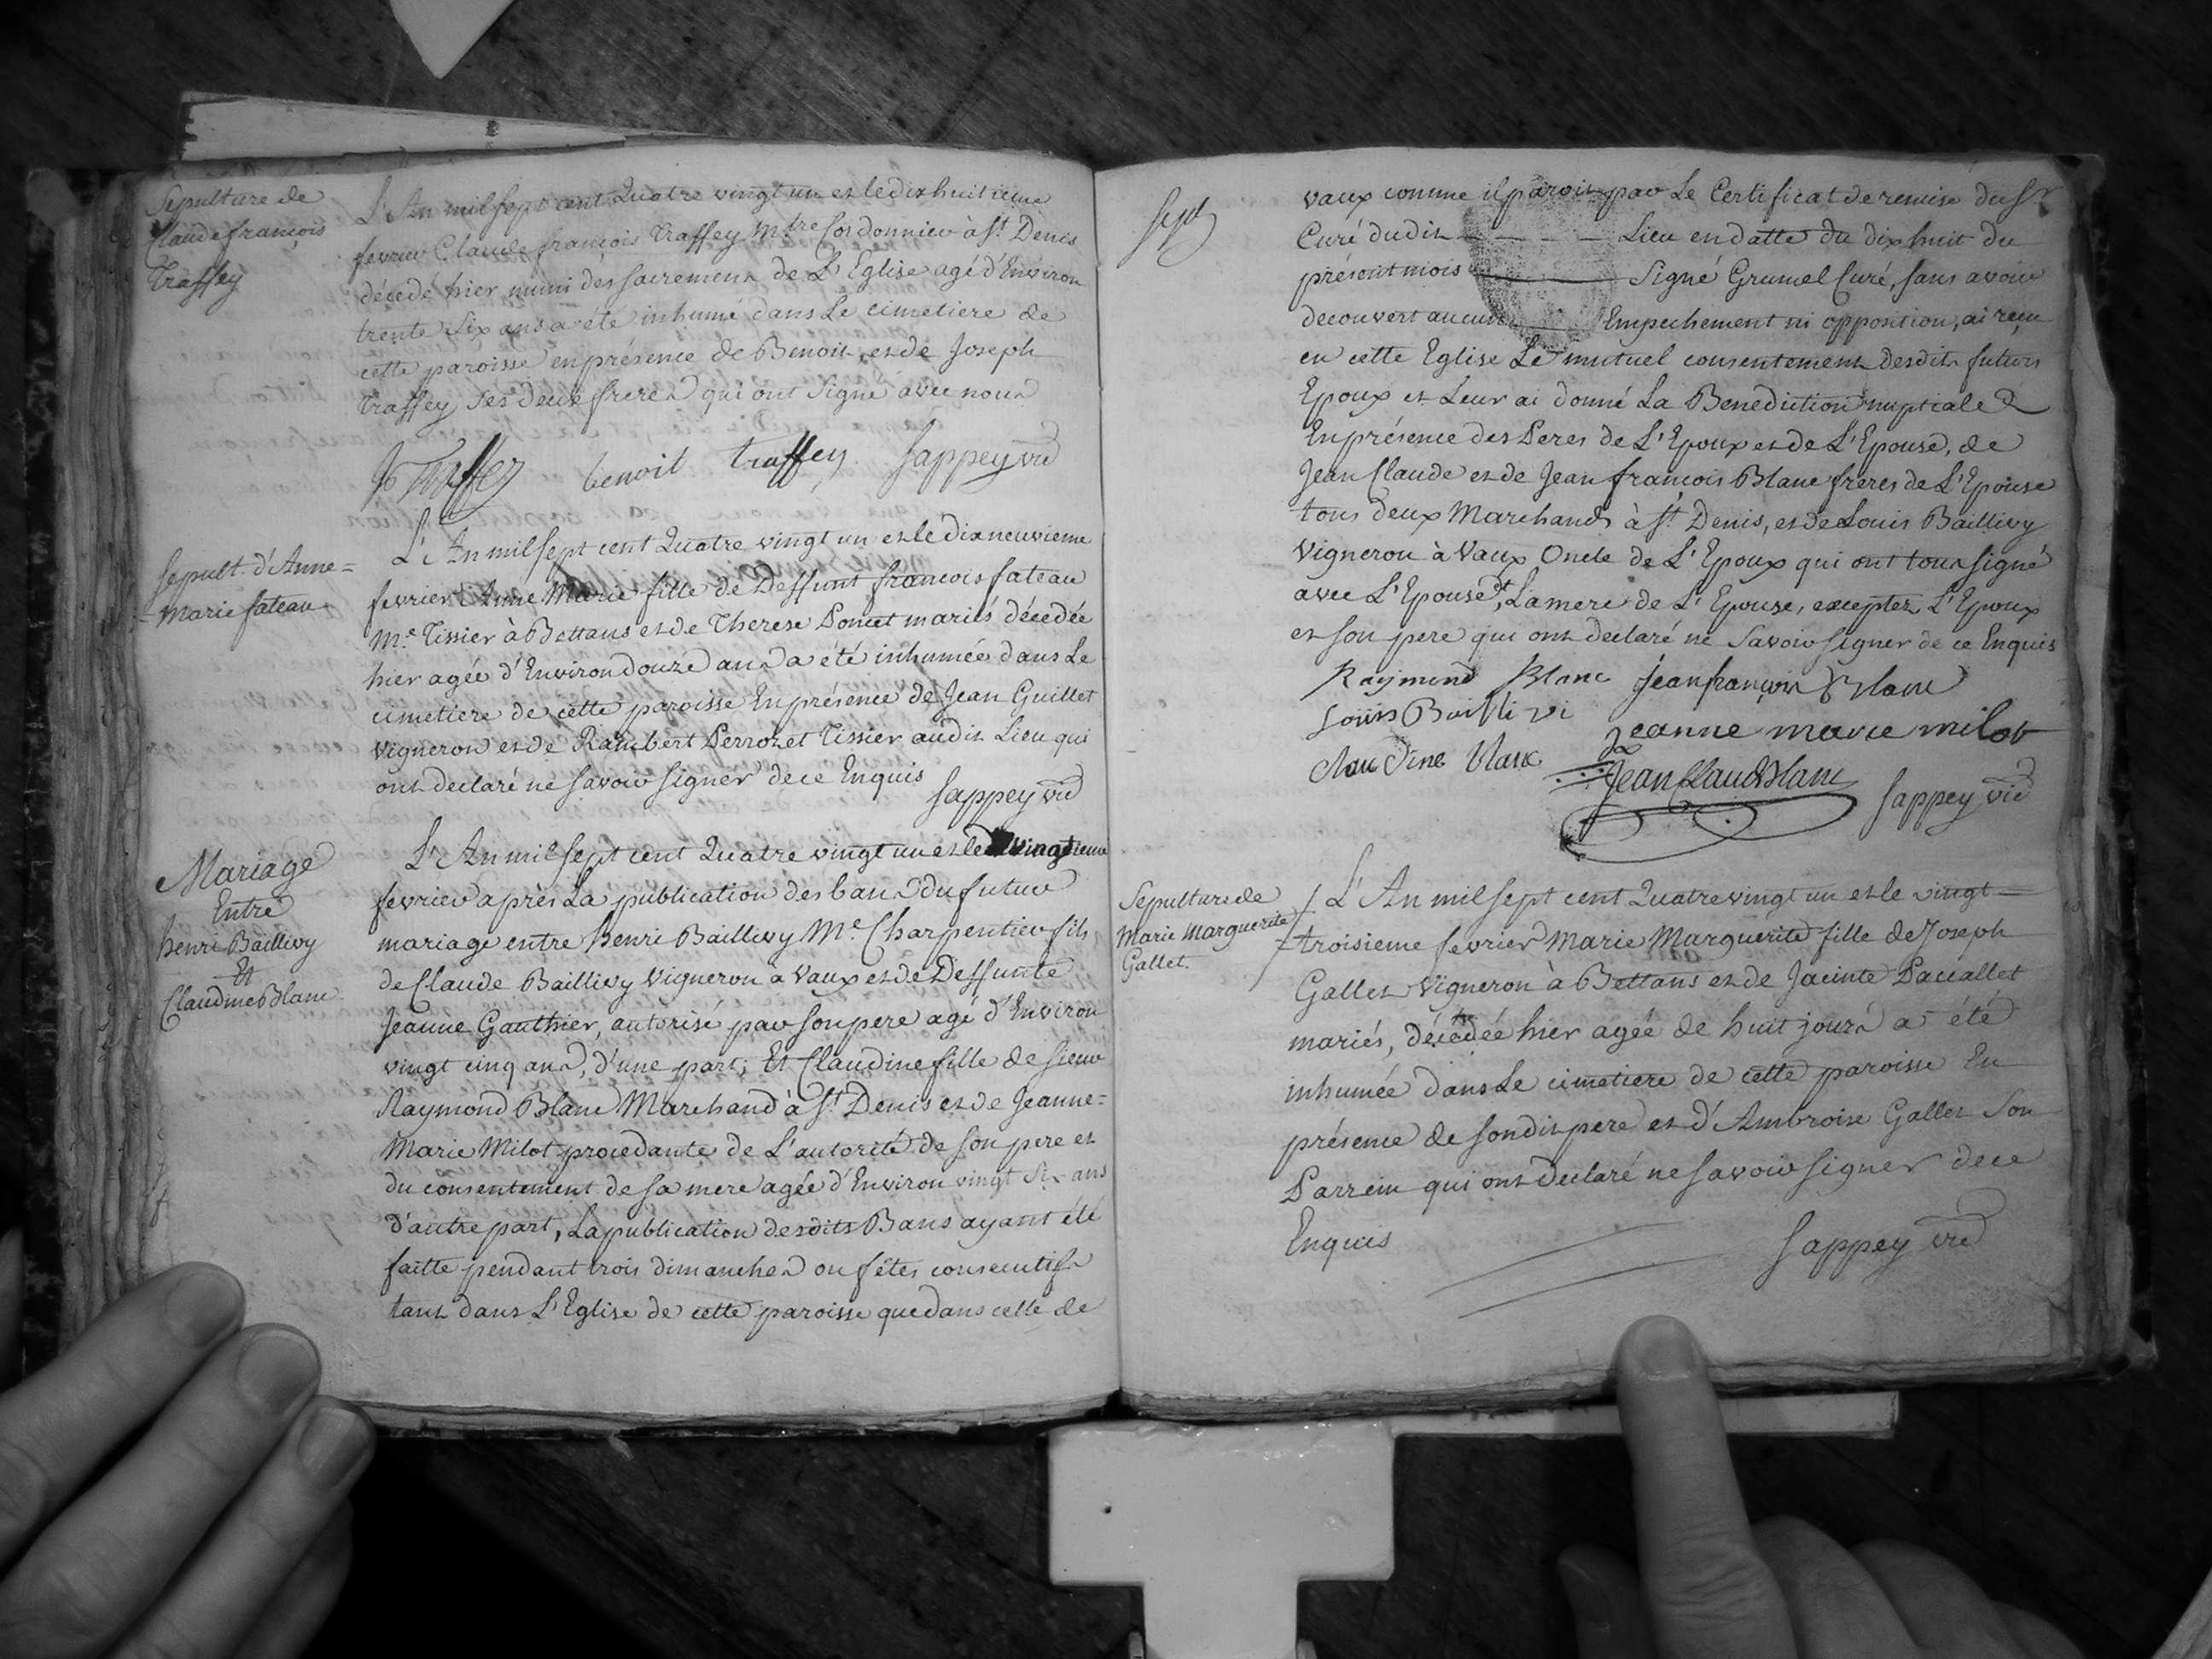 Sepulture de
Claude françois
Traffey
L'An mil sept cent Quatre vingt un et le dix huitieme
fevrier Claude françois Traffey Mtre Cordonnier à St Denis
décédé hier muni des sacremens de L'Eglise agé d'Environ
trente six ans a été inhumé dans Le cimetiere de
cette paroisse en présence de Benoit et de Joseph
Traffey ses deux freres qui ont signé avec nous
Jo Traffey benoit traffey Sappey vic
Sepult. d'Anne=
Marie fateau
L'An mil sept cent Quatre vingt un et le dix neuvieme
fevrier Anne Marie fille de Deffunt françois fateau
Me. Tissier à Bettans et de Therese Poncet mariés décédée
hier agée d'Environ douze ans a été inhumée dans Le
cimetiere de cette paroisse En présence de Jean Guillet
vigneron et de Rambert Perrozet Tissier audit Lieu qui
ont declaré ne savoir signer de ce Enquis
Sappey vic
Mariage
Entre
henri Baillivy
Et
Claudine Blanc
L'An mil sept cent Quatre vingt un et le vingtieme
fevrier après La publication des bans du futur
mariage entre henri Baillivy Me. Charpentier fils
de Claude Baillivy Vigneron à Vaux et de Deffunte
Jeanne Gauthier, autorisé par son pere agé d'Environ
vingt cinq ans, d'une part; Et Claudine fille de sieur
Raymond Blanc Marchand à St Denis et de Jeanne=
Marie Milot procedante de L'autorité de son pere et
du consentement de sa mere agée d'Environ vingt six ans
d'autre part, La publication desdits Bans ayant été
faitte pendant trois dimanches ou fêtes consecutifs
tant dans L'Eglise de cette paroisse que dans celle de
sept
vaux comme il paroit par Le Certificat de remise du Sr
Curé dudit Lieu en datte du dix huit du
présent mois Signé Grumel Curé, sans avoir
decouvert aucun Empechement ni opposition, ai reçu
en cette Eglise Le mutuel consentement desdits futurs
Epoux et Leur ai donné La Benediction nuptiale
En présence des Peres de L'Epoux et de L'Epouse, de
Jean Claude et de Jean françois Blanc freres de L'Epouse
tous deux Marchands à St Denis, et de Louis Baillivy
Vigneron à Vaux Oncle de L'Epoux qui ont tous signé
avec L'Epouse, et La mere de L'Epouse, excepter L'Epoux
et son pere qui ont declaré ne savoir signer de ce Enquis
Raymond Blanc Jean françois Blanc
Louis Baillivi
Jeanne marie milot
Claudine Blanc
Jean Claud Blanc
Sappey vic
Sepulture de
Marie Marguerite
Gallet.
L'An mil sept cent Quatre vingt un et le vingt
troisieme fevrier Marie Marguerite fille de Joseph
Gallet Vigneron à Bettans et de Jacinte Pacallet
mariés, décédée hier agée de huit jours a été
inhumée dans Le cimetiere de cette paroisse En
présence de sondit pere et d'Ambroise Gallet son
Parrein qui ont declaré ne savoir signer de ce
Enquis
Sappey vic